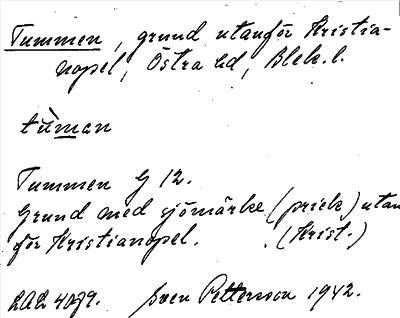 Tummen, grund utanför Kristia-
nopel, Östra hd, Blek. l.
tùman
Tummen G 12.
Grund med sjömärke (prick) utan
för Kristianopel. (Krist.)
LAL 4079. Sven Petterson 1942.